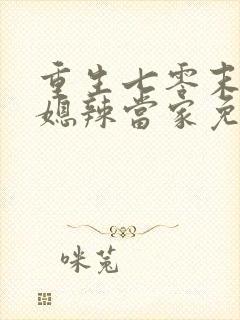 重生七零末
媳辣當家免
咪菟